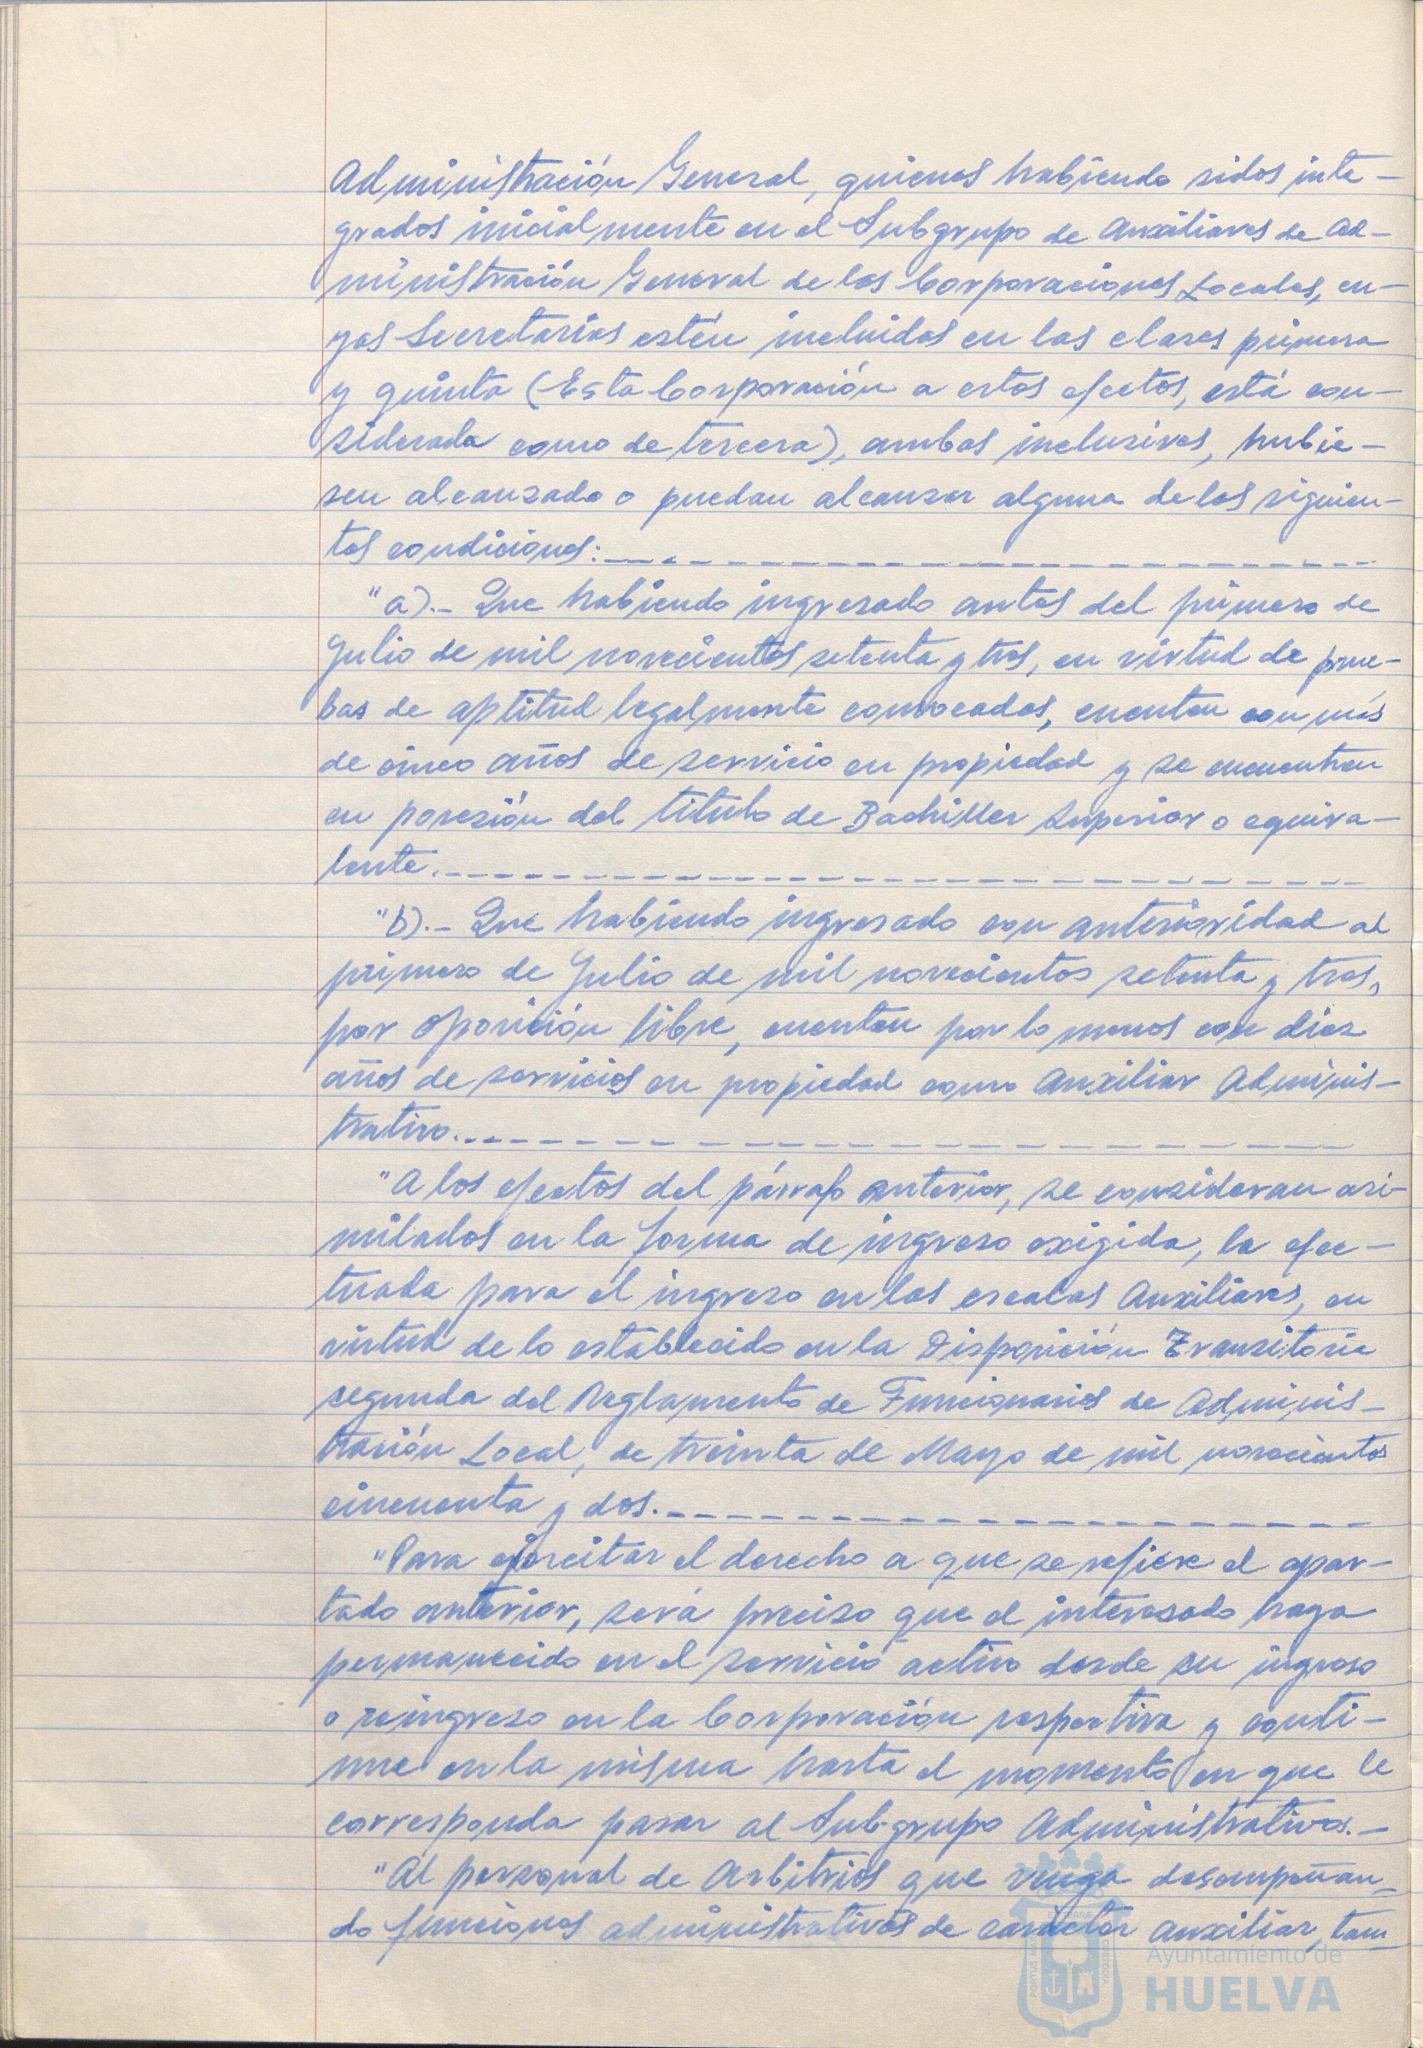 Administración General, quienes habiendo sidos inte-
grados inicialmente en el Subgrupo de Auxiliares de Ad-
ministración General de las Corporaciones Locales, cu-
yas Secretarías estén incluidas en las clases primera
y quinta (Esta Corporación a estos efectos, está con-
siderada como de tercera), ambas inclusives, hubie-
sen alcanzado o puedan alcanzar alguna de las siguien-
tes condiciones:
"a).- Que habiendo ingresado antes del primero de
Julio de mil novecientos setenta y tres, en virtud de prue-
bas de aptitud legalmente convocadas, cuenten con más
de cinco años de servicio en propiedad y se encuentren
en posesión del título de Bachiller Superior o equiva-
lente.
"b).- Que habiendo ingresado con anterioridad al
primero de Julio de mil novecientos setenta y tres,
por oposición libre, cuenten por lo menos con diez
años de servicios en propiedad como Auxiliar Adminis-
trativo.
"A los efectos del párrafo anterior, se consideran asi-
milados en la forma de ingreso exigida, la efec-
tuada para el ingreso en las escalas Auxiliares, en
virtud de lo establecido en la Disposición Transitoria
segunda del Reglamento de Funcionarios de Adminis-
tración Local, de treinta de Mayo de mil novecientos
cincuenta y dos.
"Para ejercitar el derecho a que se refiere el apar-
tado anterior, será preciso que el interesado haya
permanecido en el servicio activo desde su ingreso
o reingreso en la Corporación respectiva y conti-
nue en la misma hasta el momento en que le
corresponda pasar al Subgrupo Administrativos.-
"Al personal de Arbitrios que venga desempeñan-
do funciones administrativas de carácter auxiliar, tam
Ayuntamiento de
HUELVA